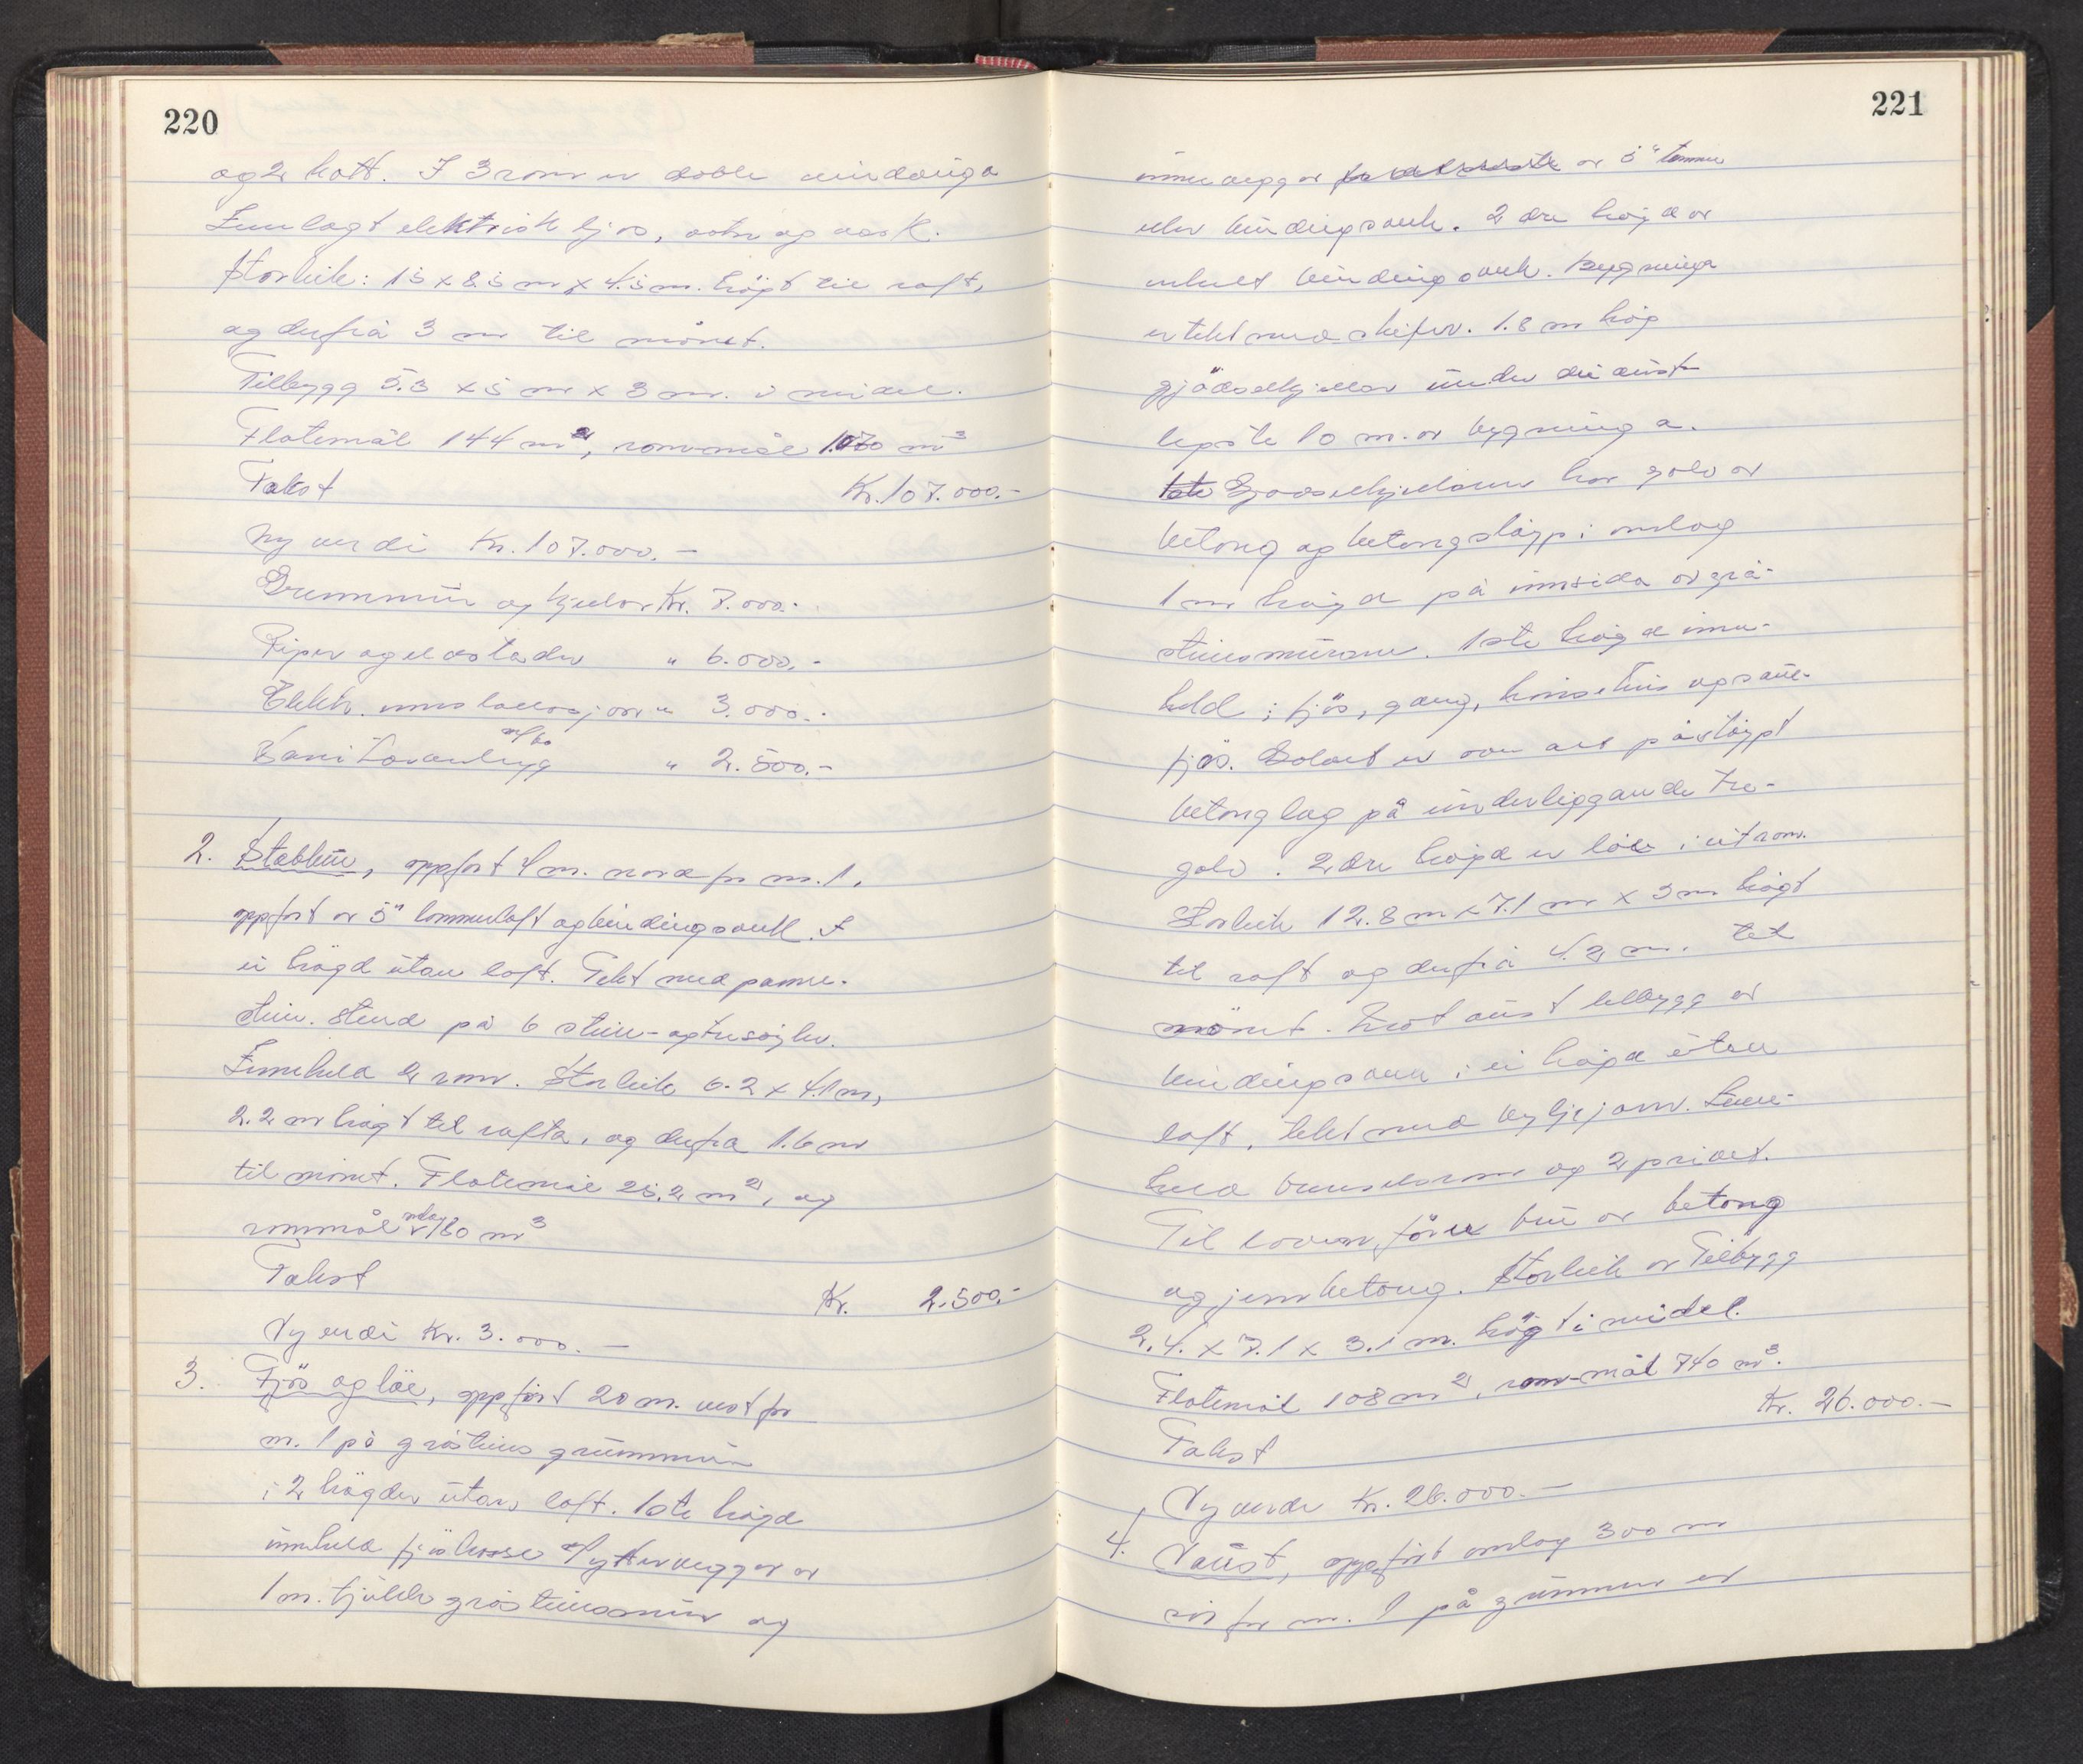 220
og 2 kott. I 3 rom er doble vindauga
Innlagt elektrisk ljos, vatn og vask.
Storleik: 15 x 8.5 m x 4.5 m. högt til raft,
og derfrå 3 m til mönet.
Tilbygg 5.3 x 5 m x 3 m. i midel.
Flatemål 144 m², rommål 1070 m³
Takst Kr. 107.000.-
Ny verdi Kr. 107.000.-
Grunnmur og kjellar Kr. 7.000.-
Piper og eldstader " 6.000.-
Elektr. innstallasjon " 3.000.-
Sanitæranlegg " 2.500.-
2. Stabbur, oppfört 4 m. nord for nr. 1.
oppfört or 5" tommerloft og bindingsverk. I
ei högd utan loft. Tekt med panne-
stein. Stend på 6 stein- og tresöyler.
Inneheld 2 rom. Storleik 6.2 x 4.1 m,
2.2 m högt til rafta, og derfrå 1.6 m
til mönet. Flatemål 25.2 m², og
rommål 80 m³
Takst Kr. 2.500.-
Ny verdi Kr. 3.000.-
3. Fjös og löe, oppfört 20 m. vest for
nr. 1 på gråsteins grunnmur
i 2 högder utan loft. 1ste högd
inneheld fjös Ytterveggar or
1 m. tjukk gråsteinsmur og
221
innvegger or 5" tommer
eller bindingsverk. 2dre högd or
enkelt bindingsverk. Bygninga
er tekt med skifer. 1.8 m hög
gjödselkjellar under den aust-
legste 10 m. or bygninga.
Gjödselkjellaren har golv or
betong og betongstöyp i omlag
1 m högd på innsida or grå-
steinsmurane. 1ste högd inne-
held i fjös, gang, hönsehus og saue-
fjös. Golvet er som det påstöypt
betonglag på underliggande tre-
golv. 2dre högd er löe i eit rom.
Storleik 12.8 m x 7.1 m x 5 m högt
til raft og derfrå 4.2 m. til
mönet. Mot aust tilbygg or
bindingsverk i ei högd utan
loft, tekt med bylgjejarn. Inne-
held og 2 privet.
Til loven förer bru or betong
og jernbetong. Storleik or Tilbygg
2.4. x 7.1 x 3.1 m. högt i midel.
Flatemål 108 m², rom-mål 740 m³.
Takst Kr. 26.000.-
Ny verdi Kr. 26.000.-
4. Naust, oppfört omlag 300 m
for nr. 1 på grunnmur or